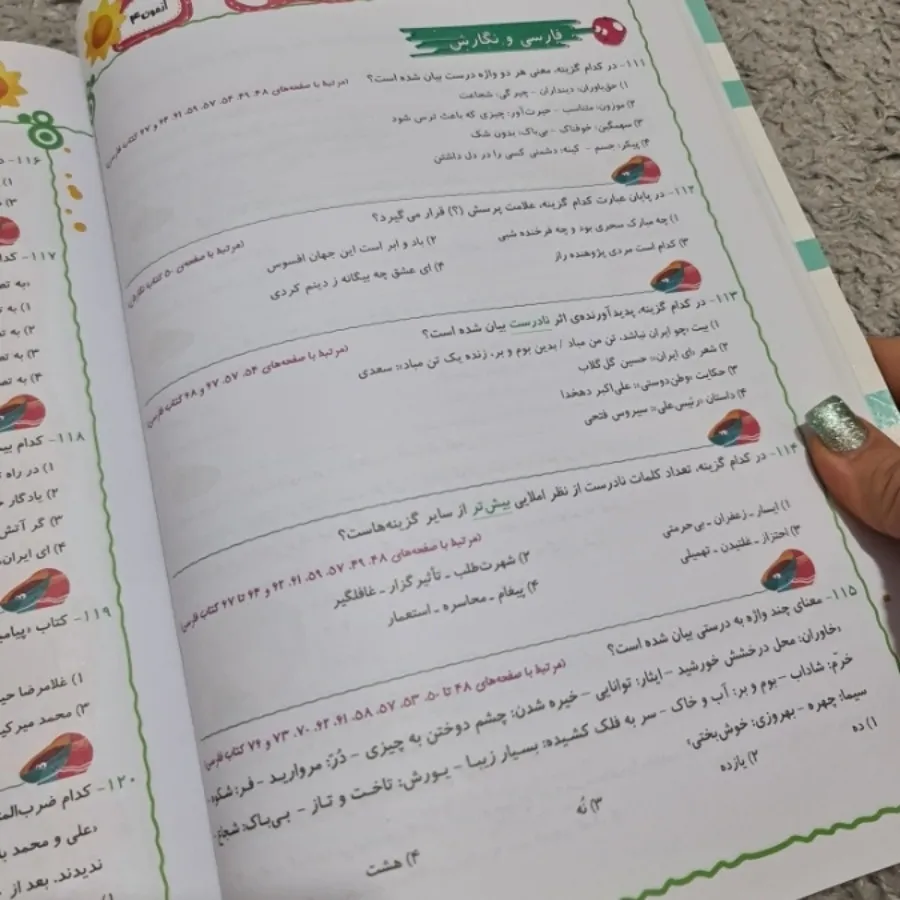 آزمون ۴
فارسی و نگارش
۱۱۱- در کدام گزینه، معنی هر دو واژه درست بیان شده است؟
(مرتبط با صفحه‌های ۴۸، ۴۹، ۵۲، ۵۷، ۵۹، ۶۱، ۶۲ و ۶۷ کتاب فارسی)
۱) حق‌باوران: دینداران - چیرگی: شجاعت
۲) موزون: متناسب - حیرت‌آور: چیزی که باعث ترس شود
۳) سهمگین: خوفناک - بی‌باک: بدون شک
۴) پیکر: جسم - کینه: دشمنی کسی را در دل داشتن
۱۱۲- در پایان عبارت کدام گزینه، علامت پرسش (؟) قرار می‌گیرد؟
(مرتبط با صفحه‌ی ۵۰ کتاب نگارش)
۱) چه مبارک سحری بود و چه فرخنده شبی
۲) باد و ابر است این جهان افسوس
۳) کدام است مردی پژوهنده راز
۴) ای عشق چه بیگانه ز دینم کردی
۱۱۳- در کدام گزینه، پدیدآورنده‌ی اثر نادرست بیان شده است؟
(مرتبط با صفحه‌های ۵۴، ۵۷، ۶۷ و ۶۸ کتاب فارسی)
۱) بیت «چو ایران نباشد، تن من مباد / بدین بوم و بر، زنده یک تن مباد»: سعدی
۲) شعر «ای ایران»: حسین گل‌گلاب
۳) حکایت «وطن‌دوستی»: علی‌اکبر دهخدا
۴) داستان «رئیس‌علی»: سیروس فتحی
۱۱۴- در کدام گزینه، تعداد کلمات نادرست از نظر املایی بیش‌تر از سایر گزینه‌هاست؟
(مرتبط با صفحه‌های ۴۸، ۴۹، ۵۷، ۵۹، ۶۱، ۶۲ و ۶۴ تا ۶۷ کتاب فارسی)
۱) ایسار - زعفران - بی‌حرمتی
۲) شهرت‌طلب - تأثیرگزار - غافلگیر
۳) احتزاز - غلتیدن - تهمیلی
۴) پیغام - محاسره - استعمار
۱۱۵- معنای چند واژه به درستی بیان شده است؟
(مرتبط با صفحه‌های ۴۸ تا ۵۰، ۵۳، ۵۷، ۵۸، ۶۱، ۶۲، ۷۰، ۷۳ و ۷۴ کتاب فارسی)
«خاوران: محل درخشش خورشید - ایثار: توانایی - خیره شدن: چشم دوختن به چیزی - دُرّ: مروارید - فر: شکوه
خرّم: شاداب - بوم و بر: آب و خاک - سر به فلک کشیده: بسیار زیبا - یورش: تاخت و تاز - بی‌باک: شجاع
سیما: چهره - بهروزی: خوش‌بختی»
۱) ده
۲) یازده
۳) نُه
۴) هشت
۱۱۶-
۱)
۱۱۷- کدا
«به تع
۱) به ت
۲) به تع
۳) به تع
۴) به تع
۱۱۸- کدام بی
۱) در راه
۲) یادگار
۳) گر آتش
۴) ای ایران
۱۱۹- کتاب «پیامب
۱) غلامرضا حی
۳) محمد میرکی
۱۲۰- کدام ضرب‌الم
«علی و محمد با
ندیدند. بعد از